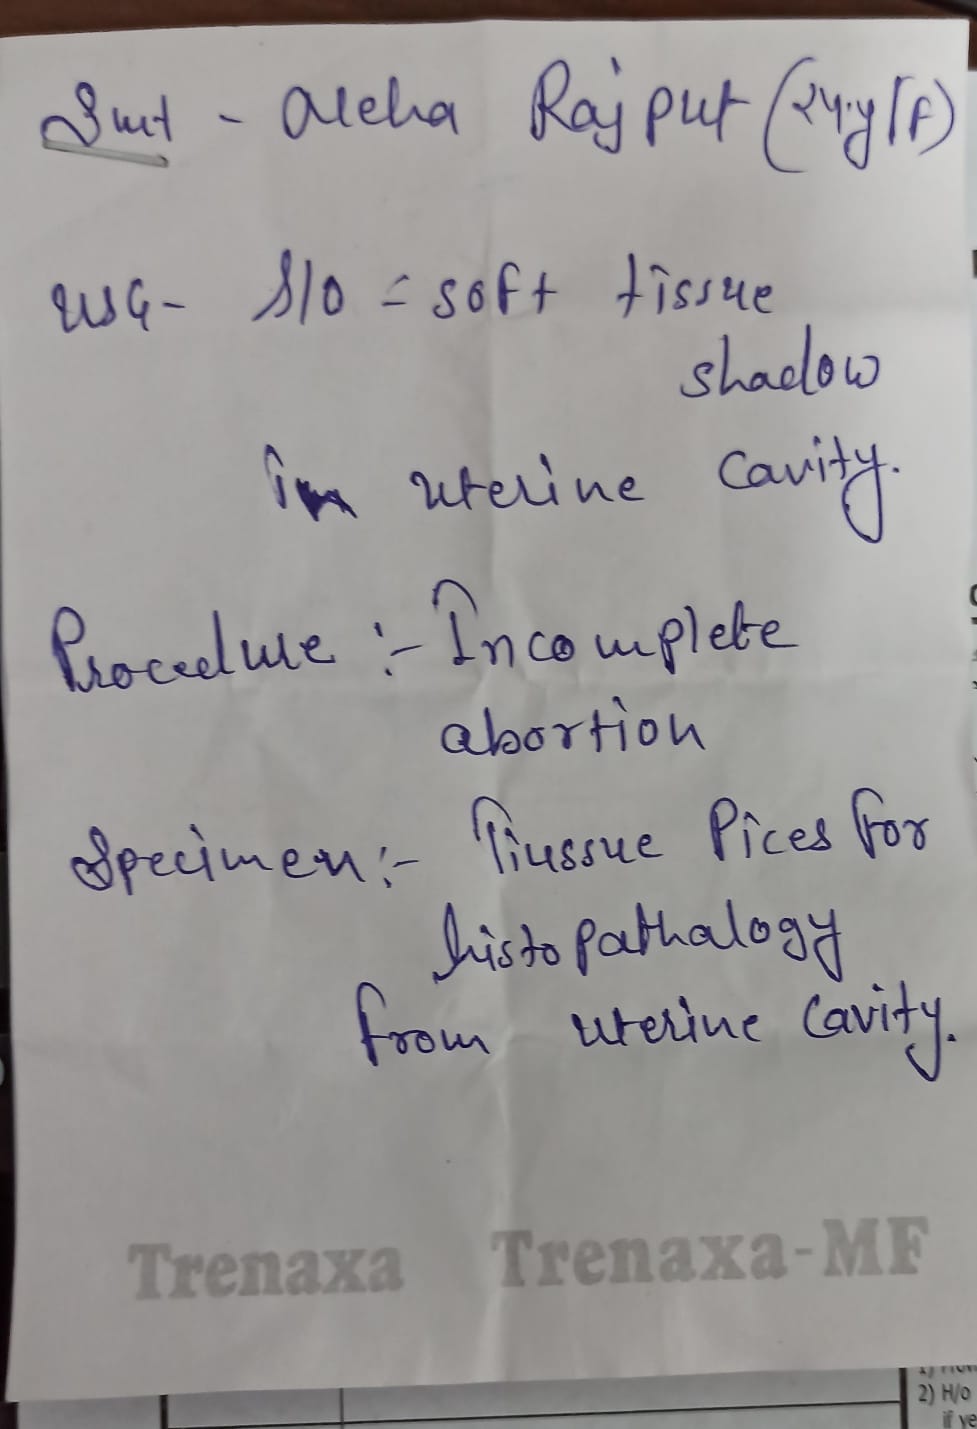 Smt - Aleha Rajput (24y/F)
USG - S/O = soft tissue
shadow
in uterine cavity.
Procedure :- Incomplete
abortion
Specimen :- Tiussue Pices for
histopathalogy
from uterine cavity.
Trenaxa Trenaxa-MF
2) H/o
if ye